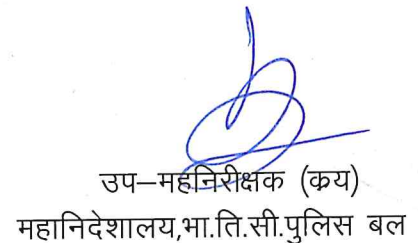 उप–महनिरीक्षक (कय)
महानिदेशालय,भा.ति.सी.पुलिस बल